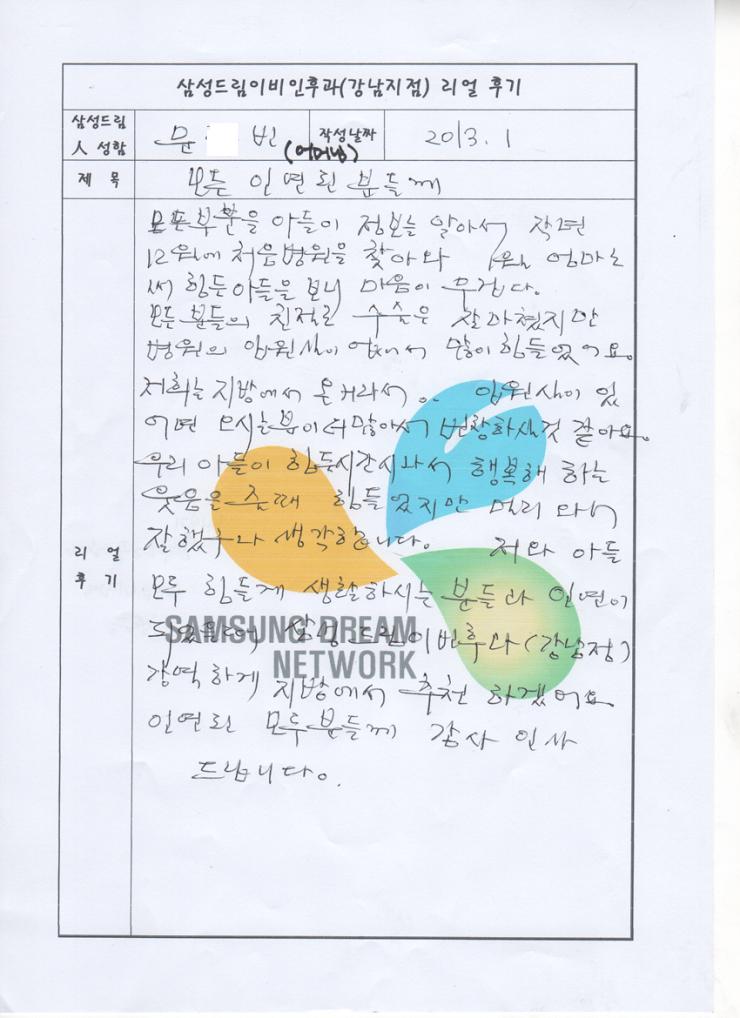 삼성드림이비인후과(강남지점) 리얼 후기
삼성드림
人 성함
문 빈
(어머님)
작성날짜
2013. 1
제 목
모든 인연된 분들께
리 얼
후 기
모든부분을 아들이 정보를 알아서 작년
12월에 처음병원을 찾아와 엄마로
써 힘든아들을 보니 마음이 무겁다.
모든 분들의 친절로 수술은 잘마쳤지만
병원의 입원실이 없어서 많이 힘들었어요.
저희는 지방에서 온거라서.. 입원실이 있
어면 오시는분이 더많아서 번창하실것 같아요.
우리 아들이 힘든시간지나서 행복해 하는
웃음을 줄때 힘들었지만 멀리 와서
잘했구나 생각합니다. 저와 아들
모두 힘들게 생활하시는 분들과 인연이
삼성드림이비후과(강남점)
강역하게 지방에서 추천 하겠어요
인연된 모두분들께 감사 인사
드립니다.
SAMSUNG DREAM
NETWORK